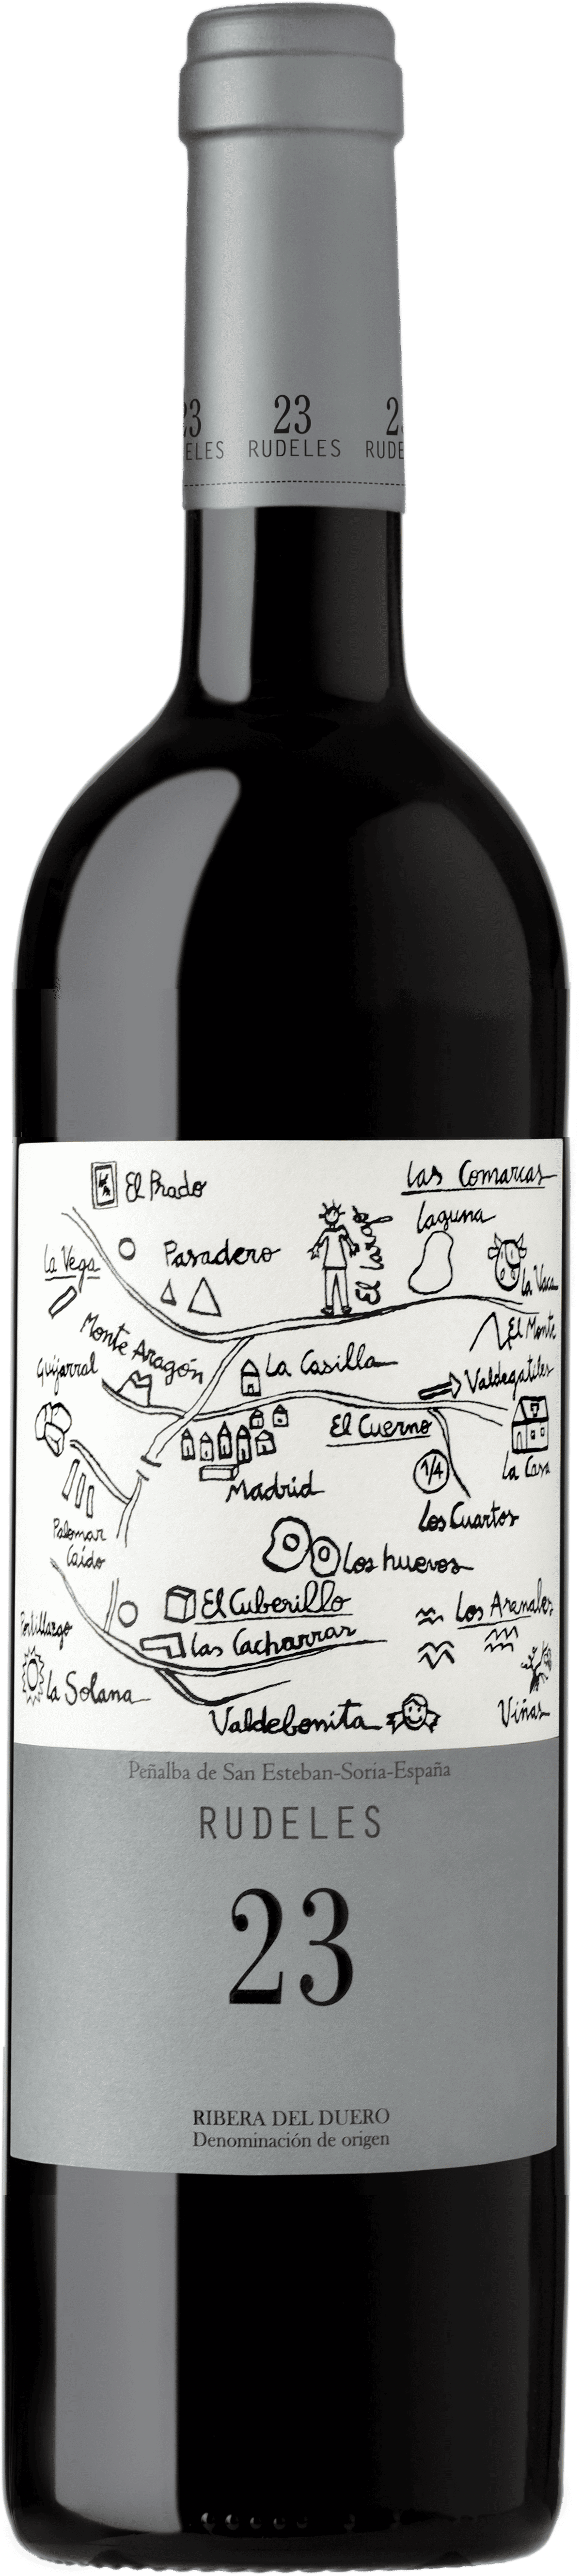 23 23 2
ELES RUDELES RUDE
El Prado
Las Comarcas
Laguna
El Largo
La Vega
Pasadero
La Vaca
Monte Aragón
El Monte
Guijarral
La Casilla
Valdegatiles
El Cuerno
La Casa
1/4
Madrid
Los Cuartos
Palomar
Caído
Los huevos
El Cuberillo
Los Arenales
Portillargo
Las Cacharras
La Solana
Viñas
Valdebonita
Peñalba de San Esteban-Soria-España
RUDELES
23
RIBERA DEL DUERO
Denominación de origen